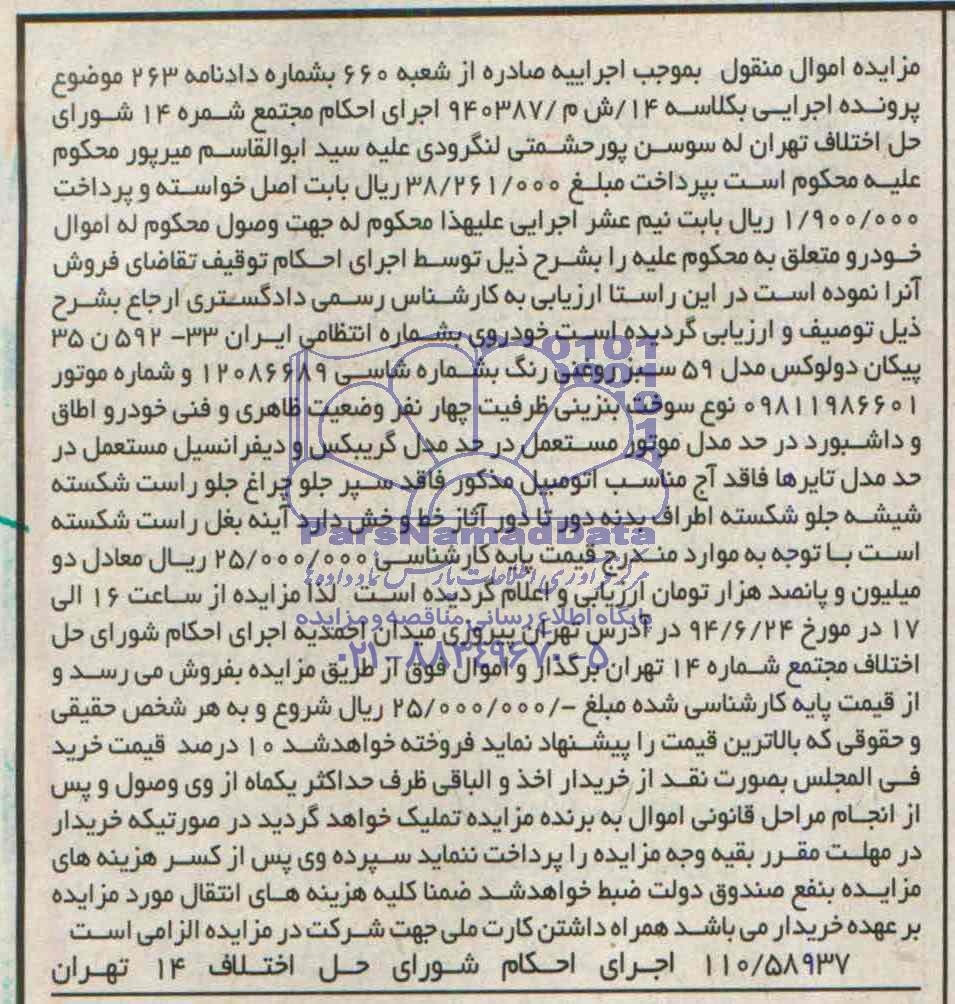 مزایده اموال منقول بموجب اجراییه صادره از شعبه ۶۶۰ بشماره دادنامه ۲۶۳ موضوع
پرونده اجرایی بکلاسه ۱۴/ش م /۹۴۰۳۸۷ اجرای احکام مجتمع شمره ۱۴ شورای
حل اختلاف تهران له سوسن پورحشمتی لنگرودی علیه سید ابوالقاسم میرپور محکوم
علیه محکوم است بپرداخت مبلغ ۳۸/۲۶۱/۰۰۰ ریال بابت اصل خواسته و پرداخت
۱/۹۰۰/۰۰۰ ریال بابت نیم عشر اجرایی علیهذا محکوم له جهت وصول محکوم له اموال
خودرو متعلق به محکوم علیه را بشرح ذیل توسط اجرای احکام توقیف تقاضای فروش
آنرا نموده است در این راستا ارزیابی به کارشناس رسمی دادگستری ارجاع بشرح
ذیل توصیف و ارزیابی گردیده است خودروی بشماره انتظامی ایران ۳۳- ۵۹۲ ن ۳۵
پیکان دولوکس مدل ۵۹ سبز روغنی رنگ بشماره شاسی ۱۲۰۸۶۶۸۹ و شماره موتور
۰۹۸۱۱۹۸۶۶۰۱ نوع سوخت بنزینی ظرفیت چهار نفر وضعیت ظاهری و فنی خودرو اطاق
و داشبورد در حد مدل موتور مستعمل در حد مدل گریبکس و دیفرانسیل مستعمل در
حد مدل تایرها فاقد آج مناسب اتومبیل مذکور فاقد سپر جلو چراغ جلو راست شکسته
شیشه جلو شکسته اطراف بدنه دور تا دور آثاز خط و خش دارد آینه بغل راست شکسته
است با توجه به موارد مندرج قیمت پایه کارشناسی ۲۵/۰۰۰/۰۰۰ ریال معادل دو
میلیون و پانصد هزار تومان ارزیابی و اعلام گردیده است لذا مزایده از ساعت ۱۶ الی
۱۷ در مورخ ۹۴/۶/۲۴ در آدرس تهران پیروزی میدان احمدیه اجرای احکام شورای حل
اختلاف مجتمع شماره ۱۴ تهران برگذار و اموال فوق از طریق مزایده بفروش می رسد و
از قیمت پایه کارشناسی شده مبلغ -/۲۵/۰۰۰/۰۰۰ ریال شروع و به هر شخص حقیقی
و حقوقی که بالاترین قیمت را پیشنهاد نماید فروخته خواهدشد ۱۰ درصد قیمت خرید
فی المجلس بصورت نقد از خریدار اخذ و الباقی ظرف حداکثر یکماه از وی وصول و پس
از انجام مراحل قانونی اموال به برنده مزایده تملیک خواهد گردید در صورتیکه خریدار
در مهلت مقرر بقیه وجه مزایده را پرداخت ننماید سپرده وی پس از کسر هزینه های
مزایده بنفع صندوق دولت ضبط خواهدشد ضمنا کلیه هزینه های انتقال مورد مزایده
بر عهده خریدار می باشد همراه داشتن کارت ملی جهت شرکت در مزایده الزامی است
۱۱۰/۵۸۹۳۷ اجرای احکام شورای حل اختلاف ۱۴ تهران
ParsNamadData
مرکز فرآوری اطلاعات پارس نماد داده ها
پایگاه اطلاع رسانی مناقصه و مزایده
۰۲۱-۸۸۳۴۹۶۷۰-۵